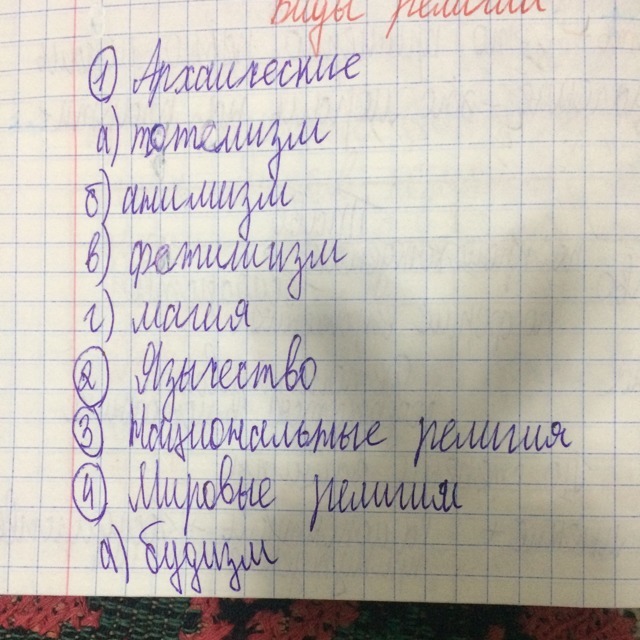 Виды религии
① Архаические
а) тотемизм
б) анимизм
в) фетишизм
г) магия
② Язычество
③ Национальные религия
④ Мировые религии
а) будизм